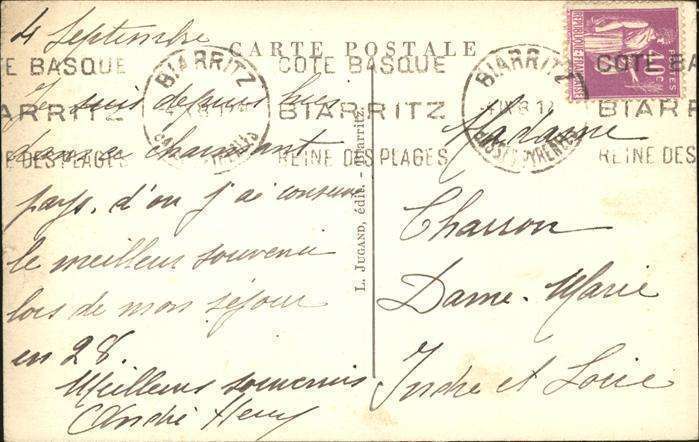 4 Septembre
CARTE POSTALE
CÔTE BASQUE
BIARRITZ
REINE DES PLAGES
BIARRITZ
BSES PYRENEES
CÔTE BASQUE
BIARRITZ
REINE DES PLAGES
BIARRITZ
BSES PYRENEES
CÔTE BASQUE
BIARR
REINE DES
POSTES
40c
REPUBLIQUE FRANÇAISE
Je suis depuis hier
dans ce charmant
pays, d'où j'ai conservé
le meilleur souvenir
lors de mon séjour
en 28.
Meilleurs souvenirs
André
L. JUGAND, édit. - Biarritz.
Madame
Chasson
Dame-Marie
Indre et Loire